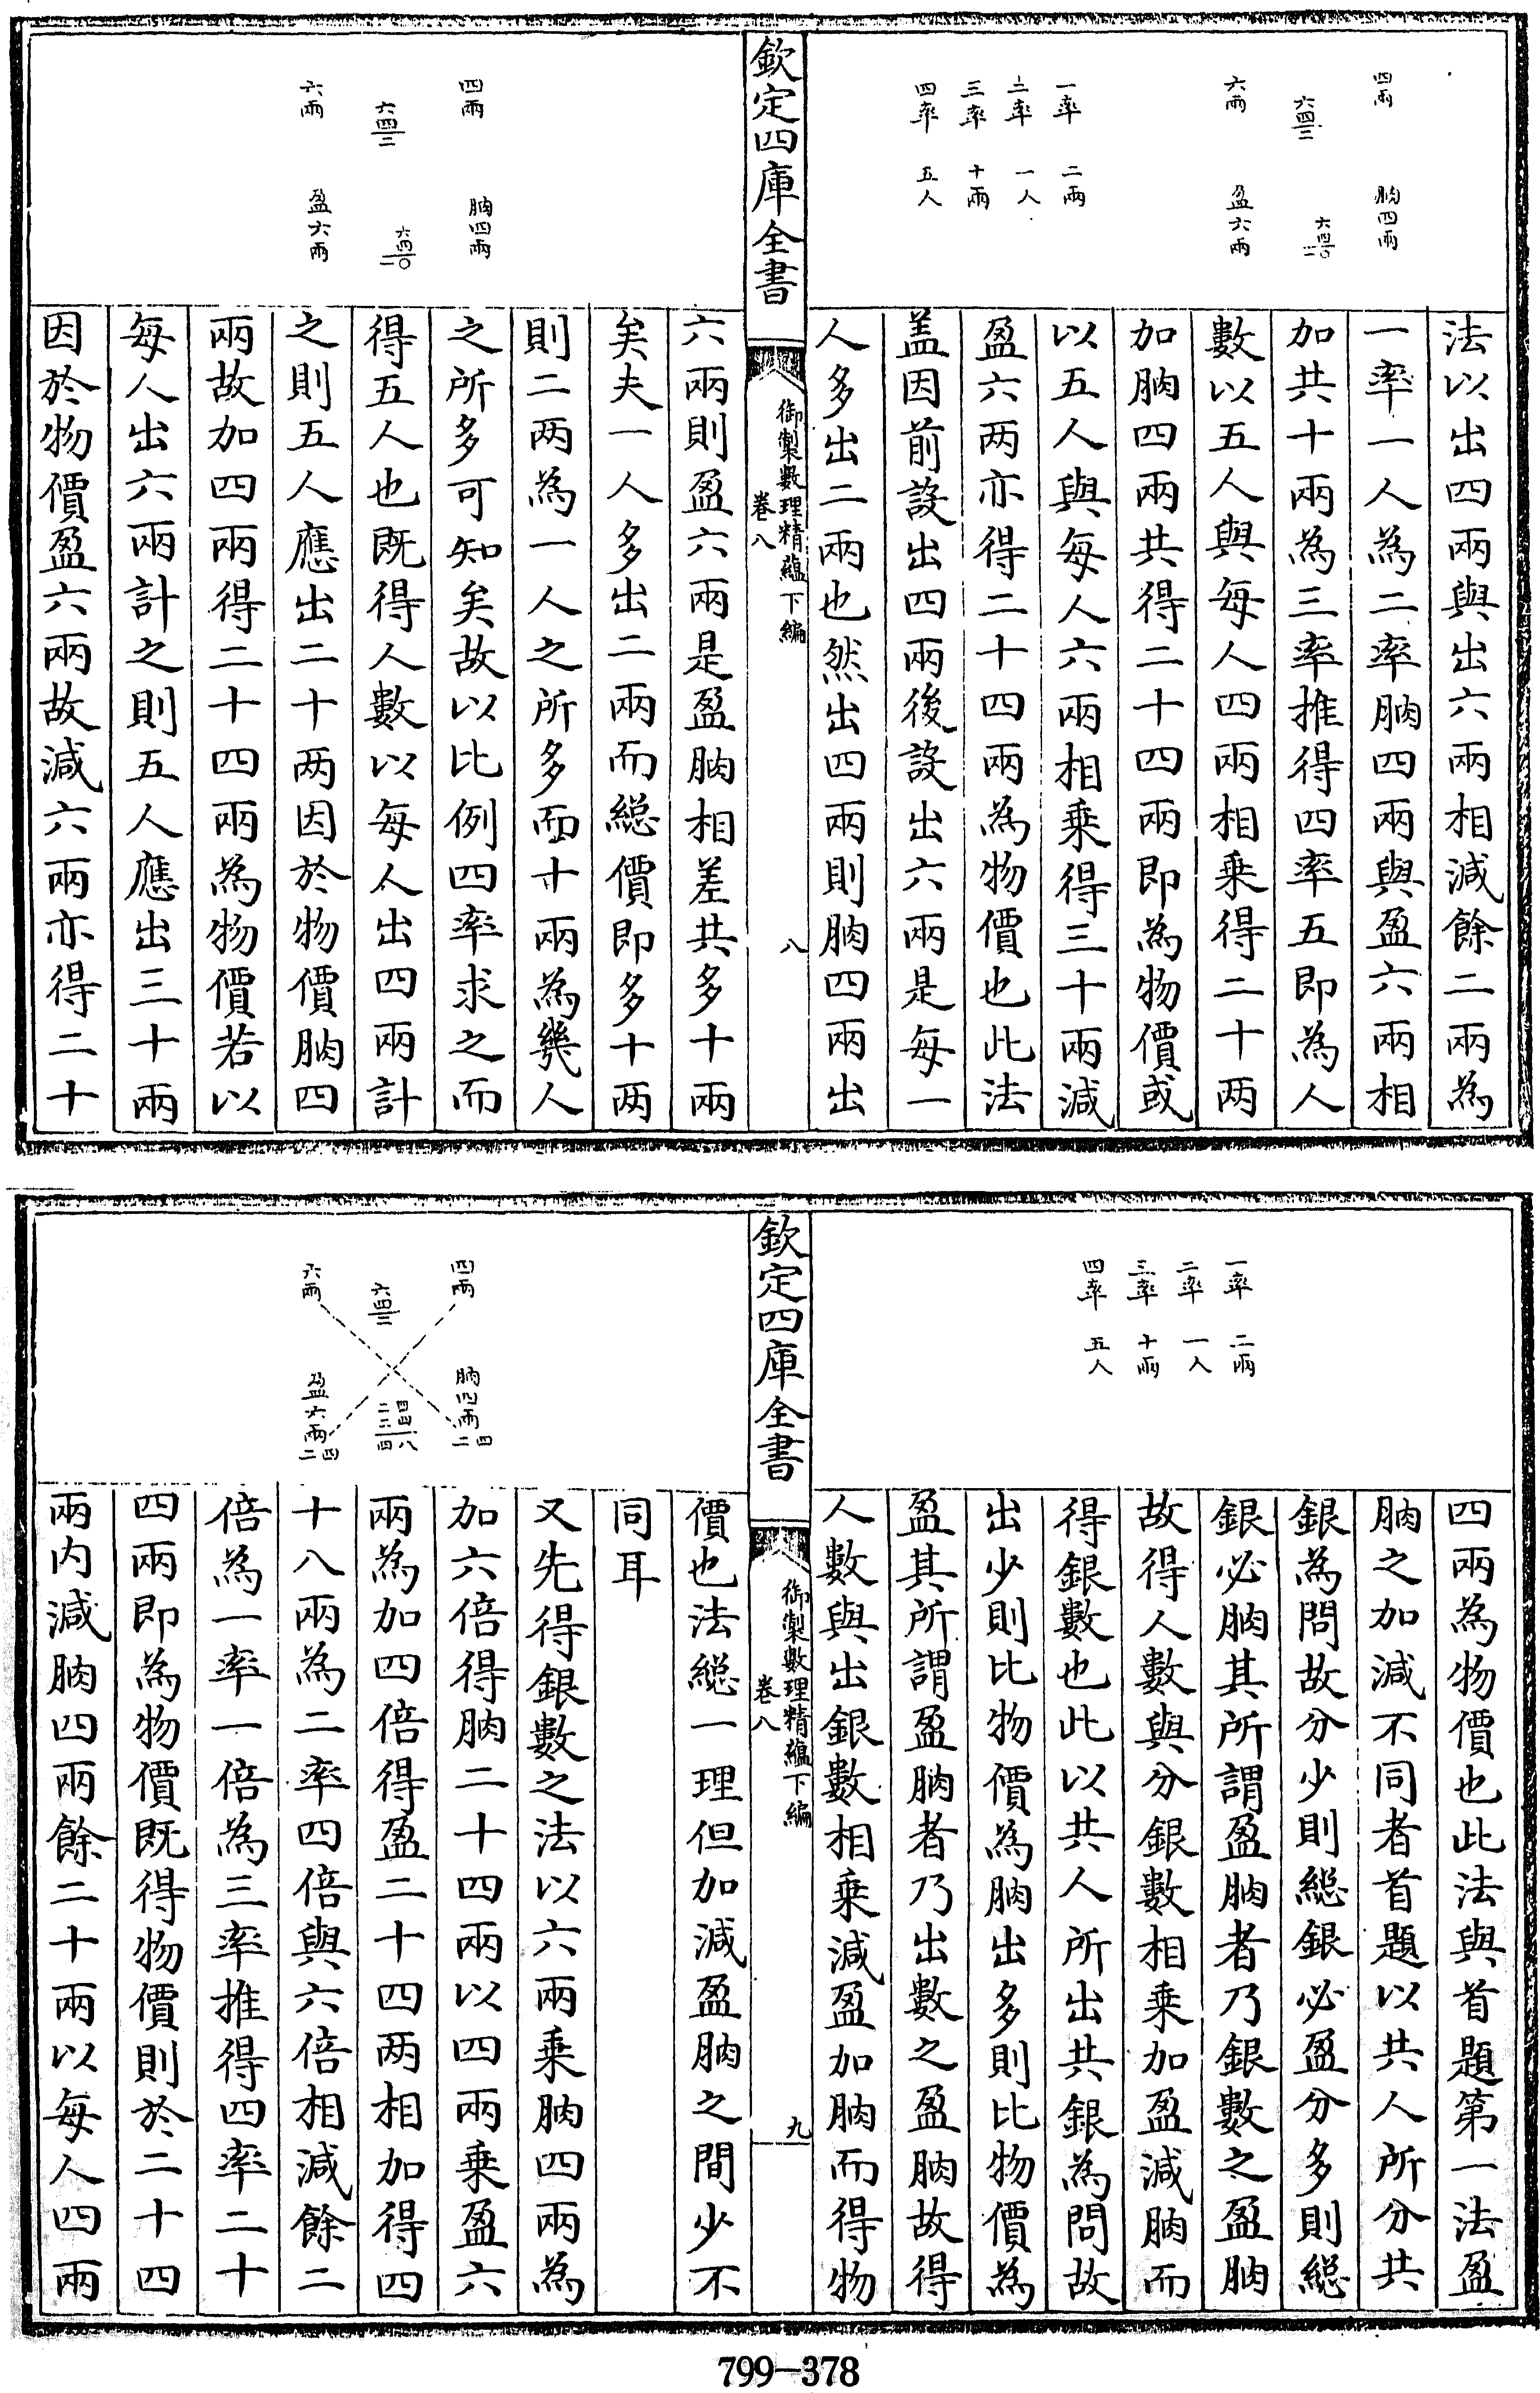 四兩
六四二
六兩
朒四兩
六四一〇
盈六兩
一率 二兩
二率 一人
三率 十兩
四率 五人
法以出四兩與出六兩相減餘二兩為
一率一人為二率朒四兩與盈六兩相
加共十兩為三率推得四率五即為人
數以五人與每人四兩相乗得二十两
加朒四兩共得二十四兩即為物價或
以五人與每人六兩相乗得三十兩減
盈六两亦得二十四兩為物價也此法
盖因前設出四兩後設出六兩是每一
人多出二兩也然出四兩則朒四兩出
欽定四庫全書
御製數理精蘊下編
卷八
八
四兩
六四二
六兩
朒四兩
六四一〇
盈六兩
六兩則盈六兩是盈朒相差共多十兩
矣夫一人多出二兩而総價即多十两
則二两為一人之所多而十兩為幾人
之所多可知矣故以比例四率求之而
得五人也既得人數以每人出四兩計
之則五人應出二十两因於物價朒四
兩故加四兩得二十四兩為物價若以
每人出六兩計之則五人應出三十兩
因於物價盈六兩故減六兩亦得二十
一率 二兩
二率 一人
三率 十兩
四率 五人
四兩為物價也此法與首題第一法盈
朒之加減不同者首題以共人所分共
銀為問故分少則総銀必盈分多則総
銀必朒其所謂盈朒者乃銀數之盈朒
故得人數與分銀數相乗加盈減朒而
得銀數也此以共人所出共銀為問故
出少則比物價為朒出多則比物價為
盈其所謂盈朒者乃出數之盈朒故得
人數與出銀數相乗減盈加朒而得物
欽定四庫全書
御製數理精蘊下編
卷八
九
四兩
六四二
六兩
朒四兩 二四
二二四 四四八
盈六兩 二四
價也法総一理但加減盈朒之間少不
同耳
又先得銀數之法以六兩乗朒四兩為
加六倍得朒二十四兩以四兩乗盈六
兩為加四倍得盈二十四两相加得四
十八兩為二率四倍與六倍相減餘二
倍為一率一倍為三率推得四率二十
四兩即為物價既得物價則於二十四
兩内減朒四兩餘二十兩以每人四兩
799-378